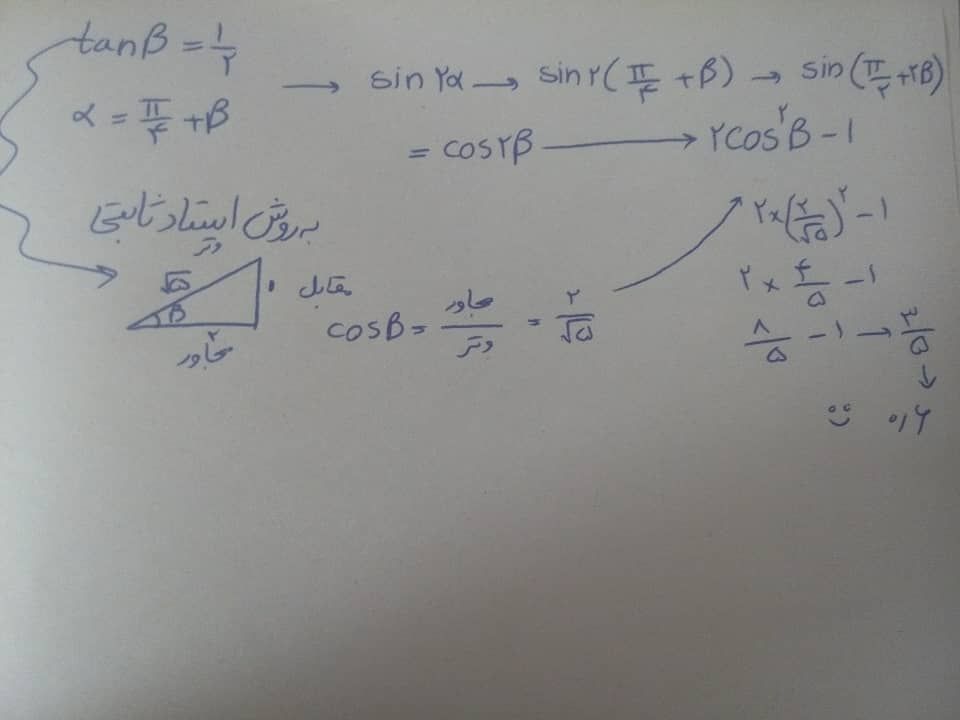 tanβ = ۱/۲
α = π/۴ + β → sin ۲α → sin ۲(π/۴ + β) → sin(π/۲ + ۲β)
= cos ۲β → ۲cos²β - ۱
به روش استاد ثابتی
۲×(۲/√۵)² - ۱
وتر
√۵
β
۱ مقابل
۲
مجاور
cosβ = مجاور/وتر = ۲/√۵
۲ × ۴/۵ - ۱
۸/۵ - ۱ → ۳/۵
↓
۰,۶